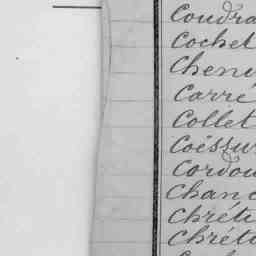 Coudra
Cochet
Chenu
Carré
Collet
Coëssur
Cordou
Chanc
Chréti
Chréti